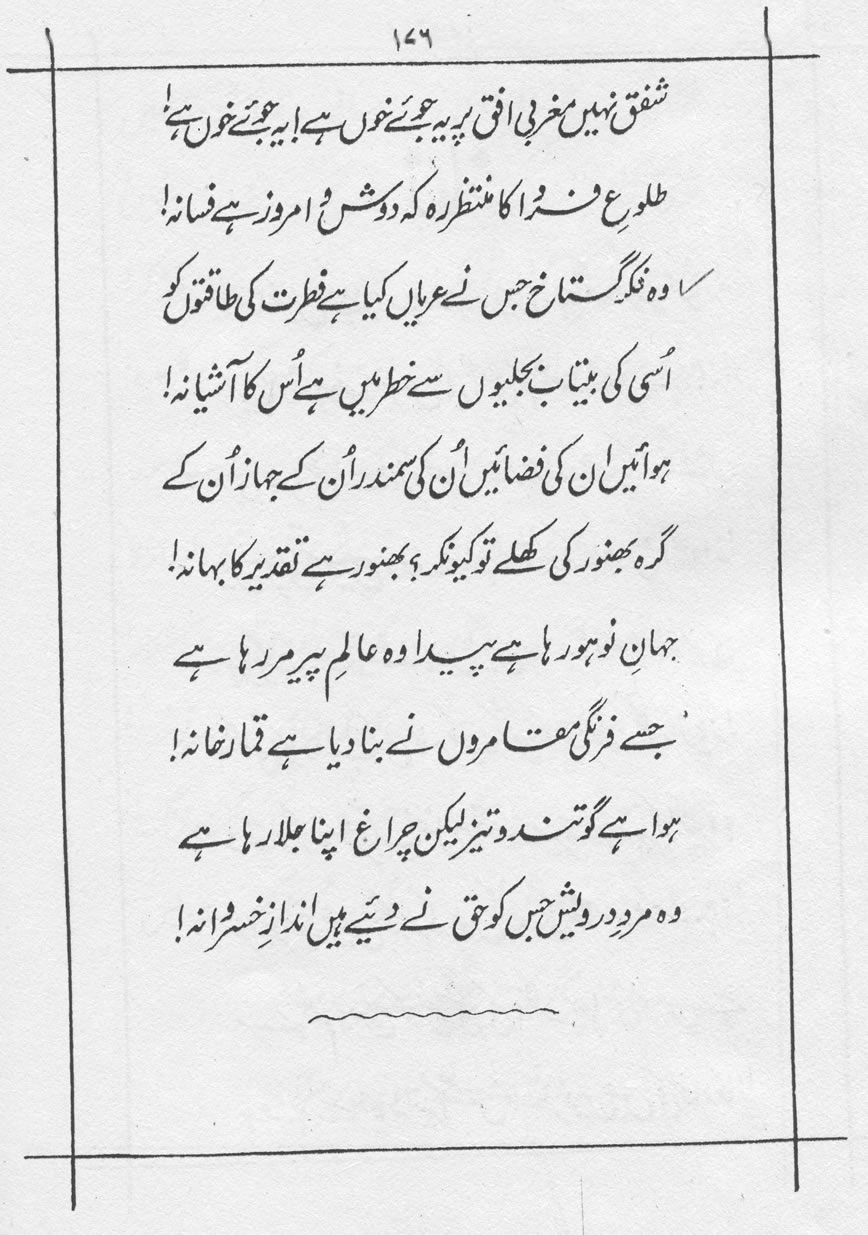 ۱۷۶
شفق نہیں مغربی افق پر یہ جوئے خوں ہے! یہ جوئے خوں ہے!
طلوعِ فردا کا منتظر رہ کہ دوش و امروز ہے فسانہ!
وہ فکر گستاخ جس نے عریاں کیا ہے فطرت کی طاقتوں کو
اُسی کی بیتاب بجلیوں سے خطر میں ہے اُس کا آشیانہ!
ہوائیں ان کی فضائیں اُن کی سمندر اُن کے جہاز اُن کے
گرہ بھنور کی کھلے تو کیونکر؟ بھنور ہے تقدیر کا بہانہ!
جہانِ نو ہو رہا ہے پیدا وہ عالمِ پیر مر رہا ہے
جسے فرنگی مقامروں نے بنا دیا ہے قمار خانہ!
ہوا ہے گو تند و تیز لیکن چراغ اپنا جلا رہا ہے
وہ مردِ درویش جس کو حق نے دئیے ہیں اندازِ خسروانہ!